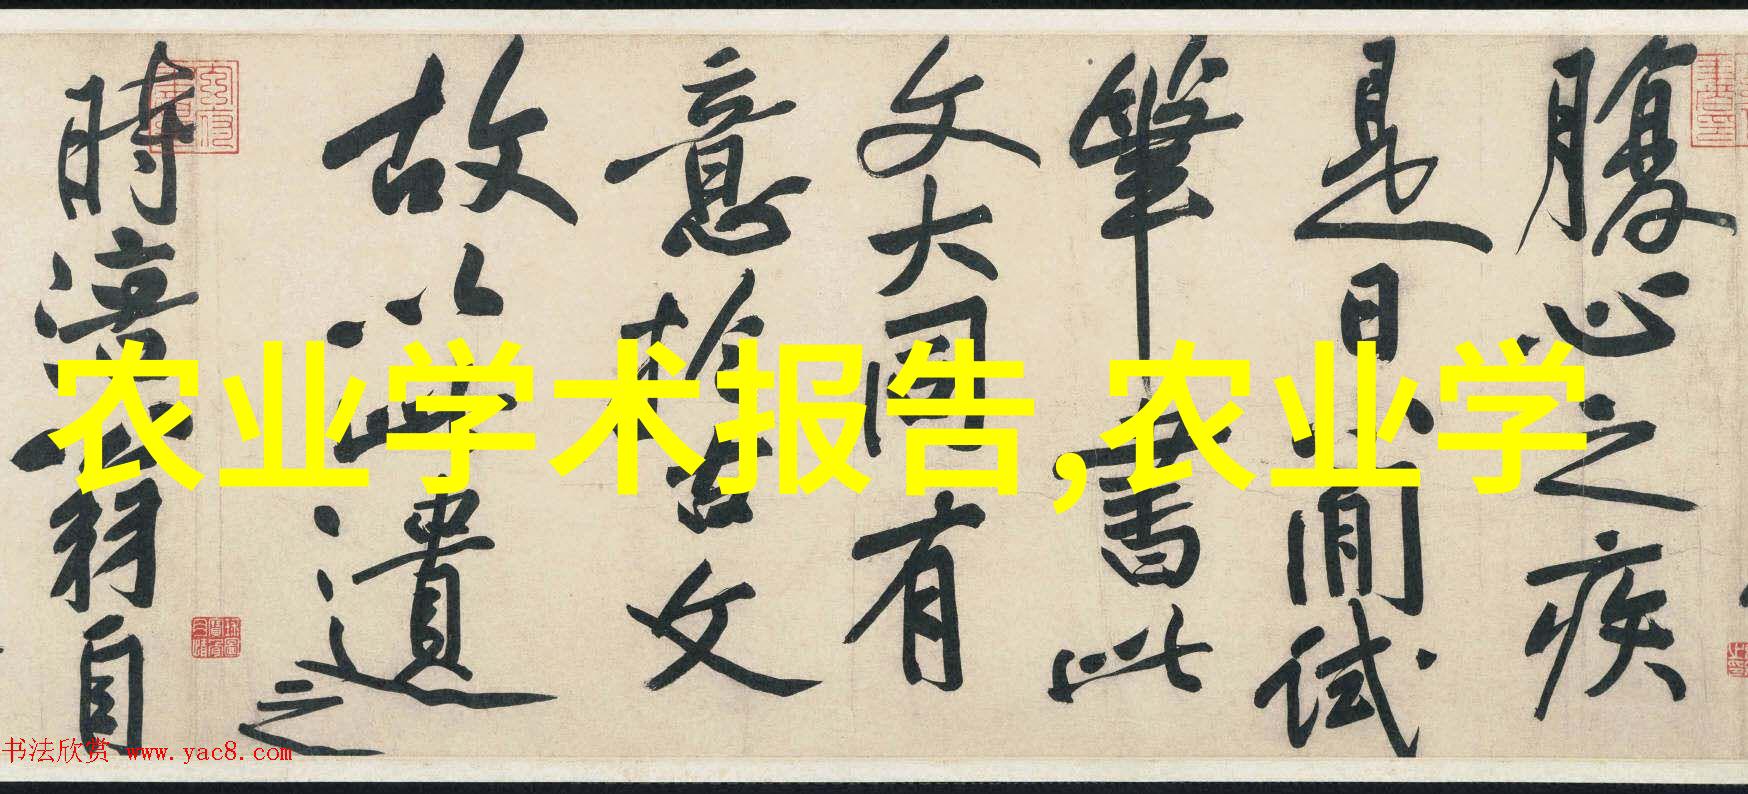 腹心之疾
是日閒試
筆書此
文大同有
意於古文
故以此遺之
時涪翁自
农业学术报告,农业学
书法欣赏 www.yac8.com